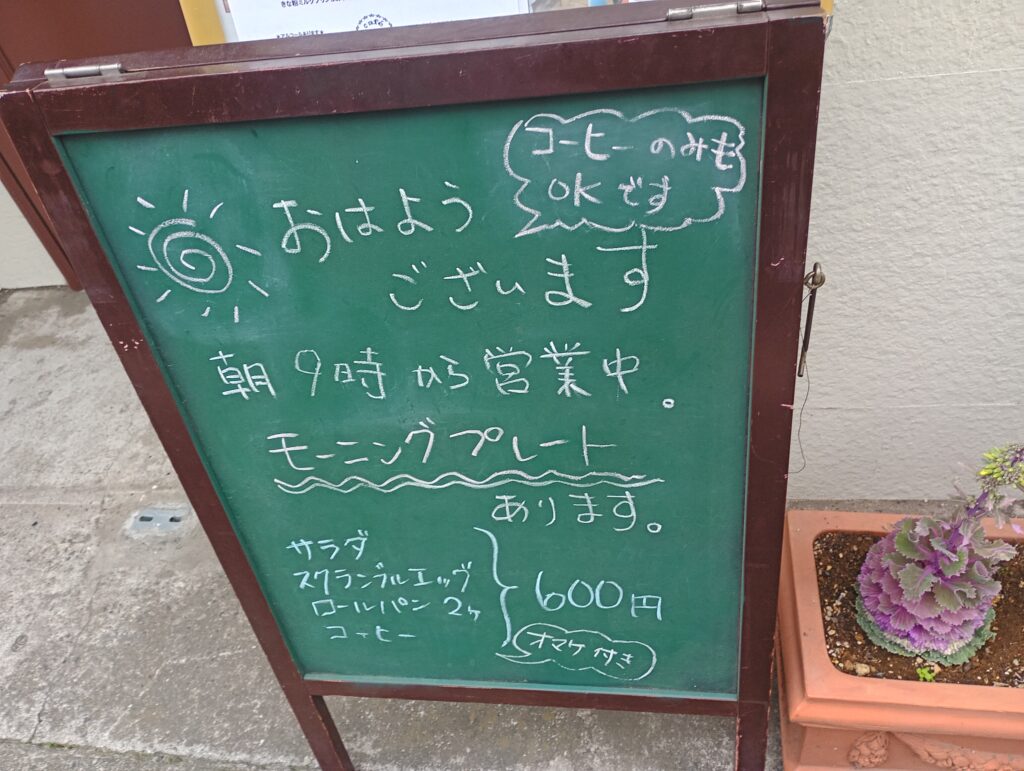 *アルコールあります*
café
コーヒーのみも
OKです
おはよう
ございます
朝9時から営業中。
モーニングプレート
あります。
サラダ
スクランブルエッグ
ロールパン 2ヶ
コーヒー
600円
オマケ付き